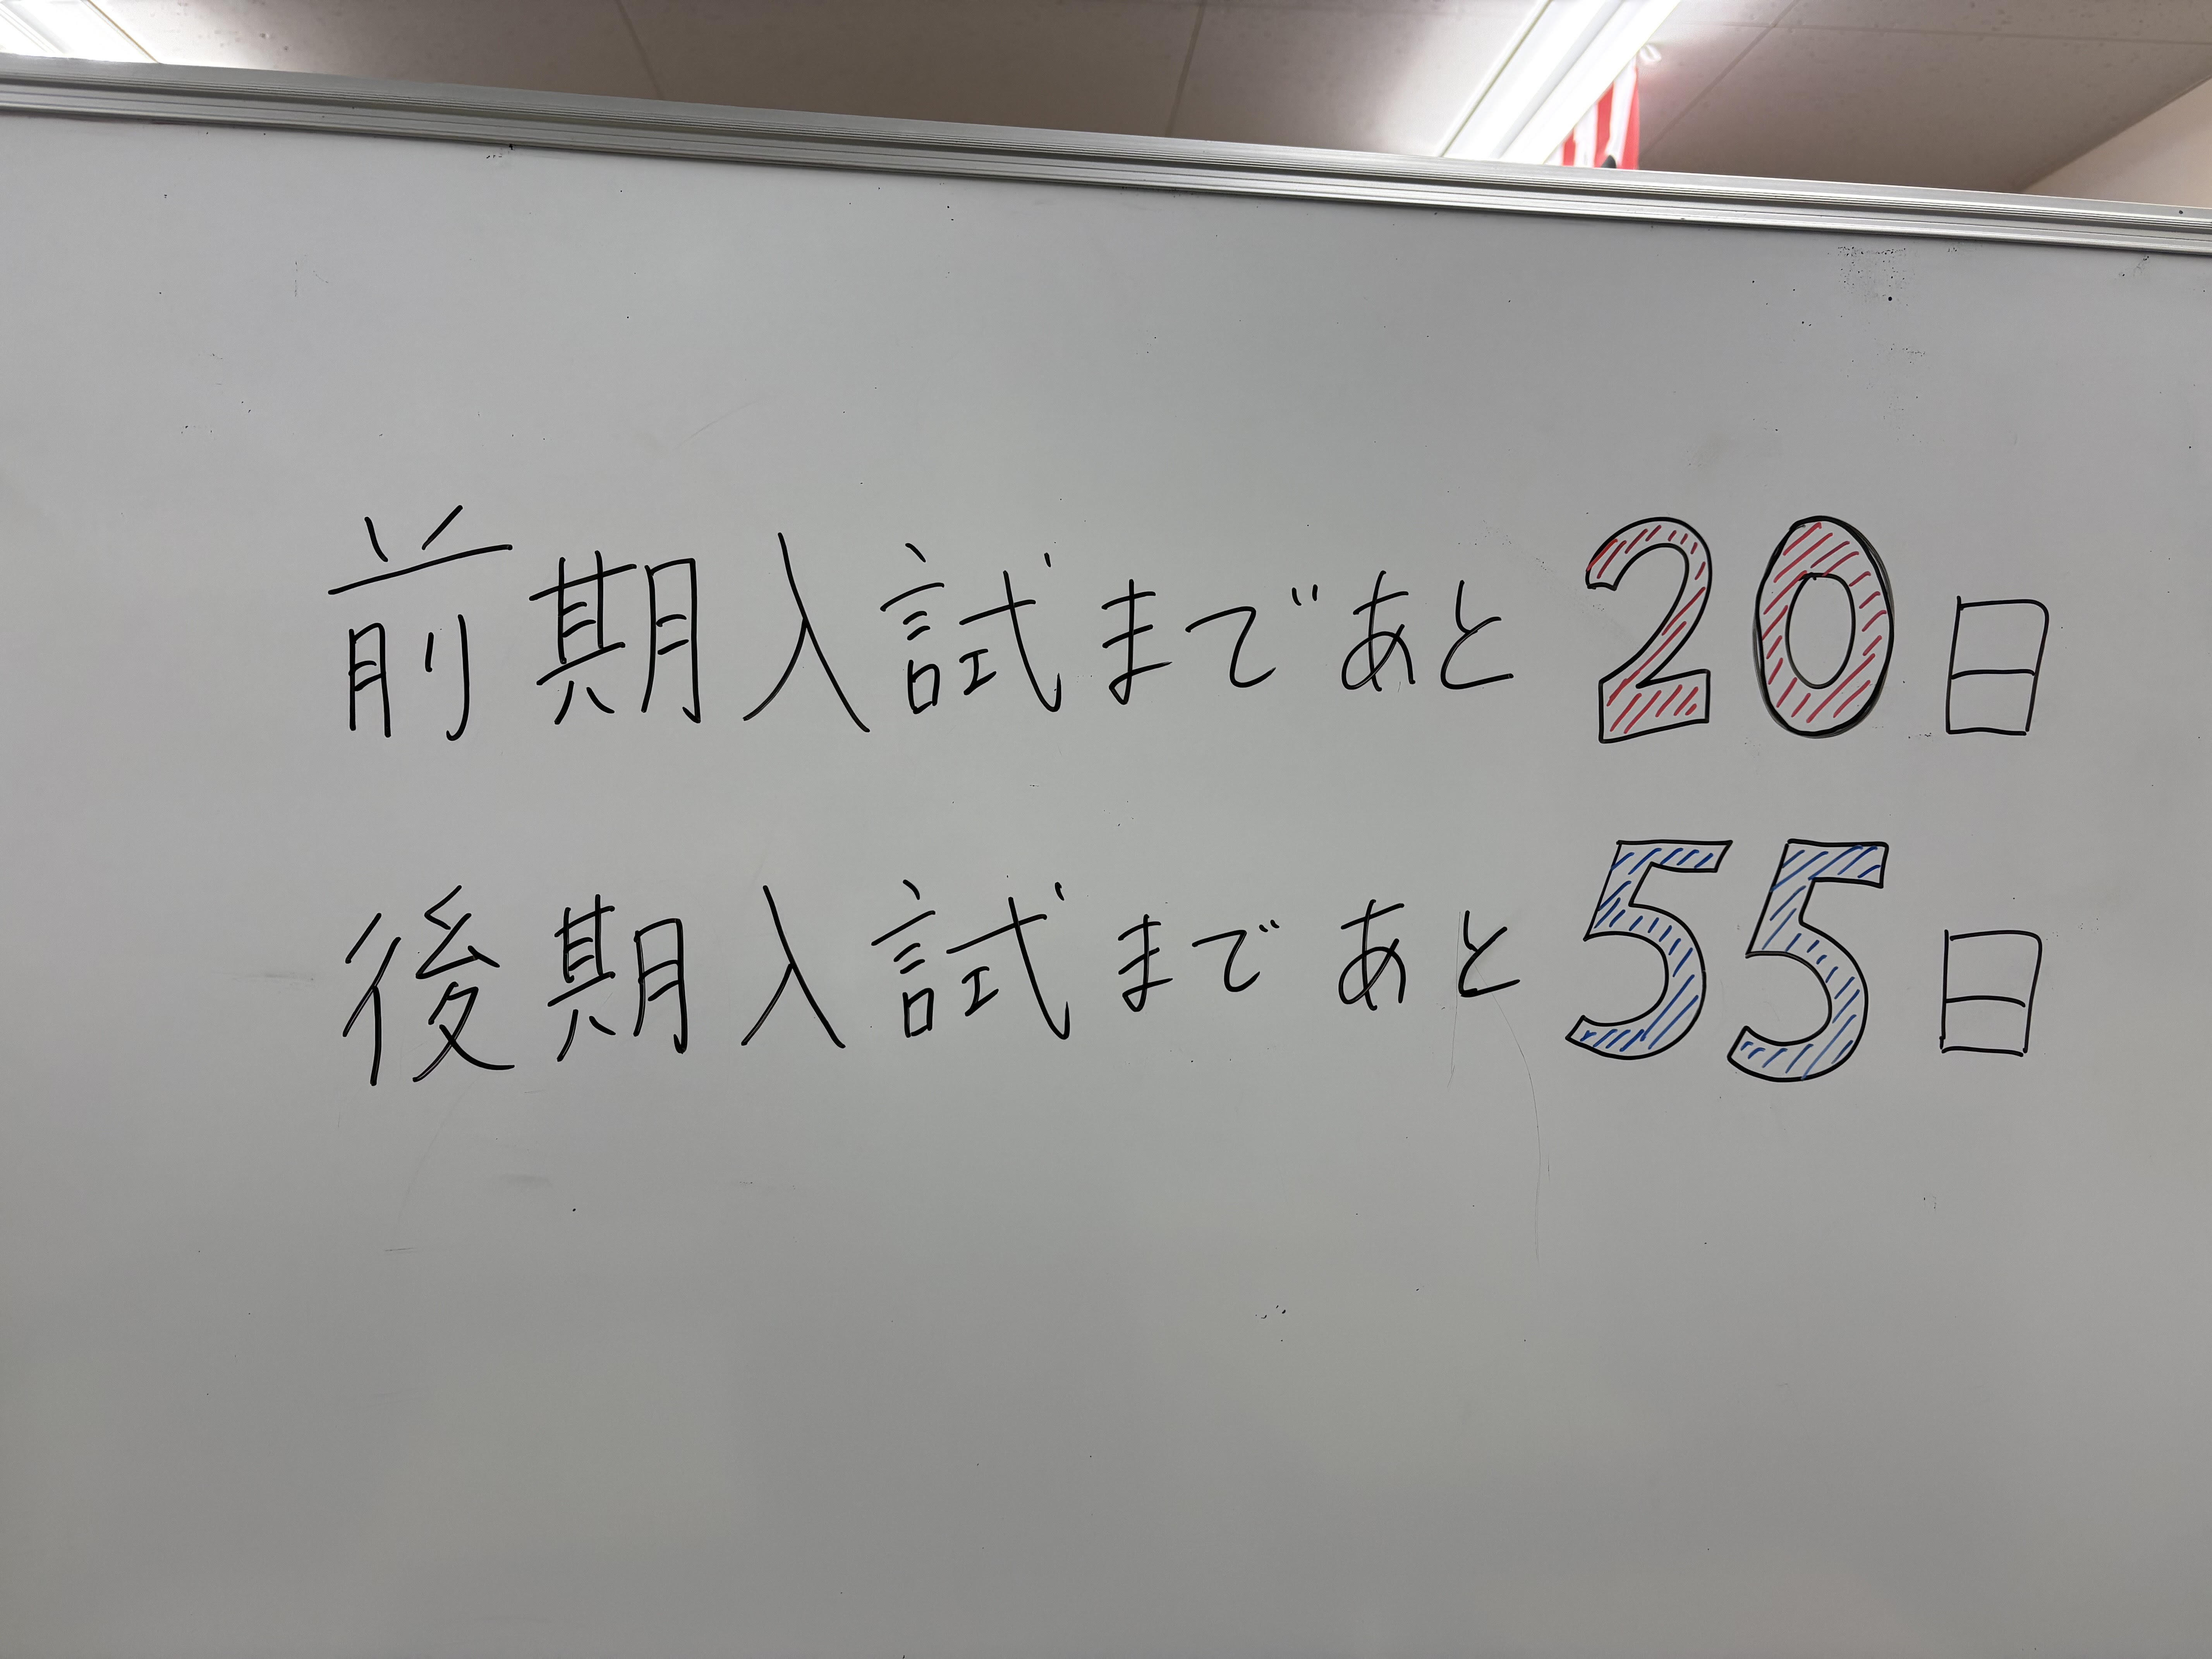 前期入試まであと20日
後期入試まであと55日